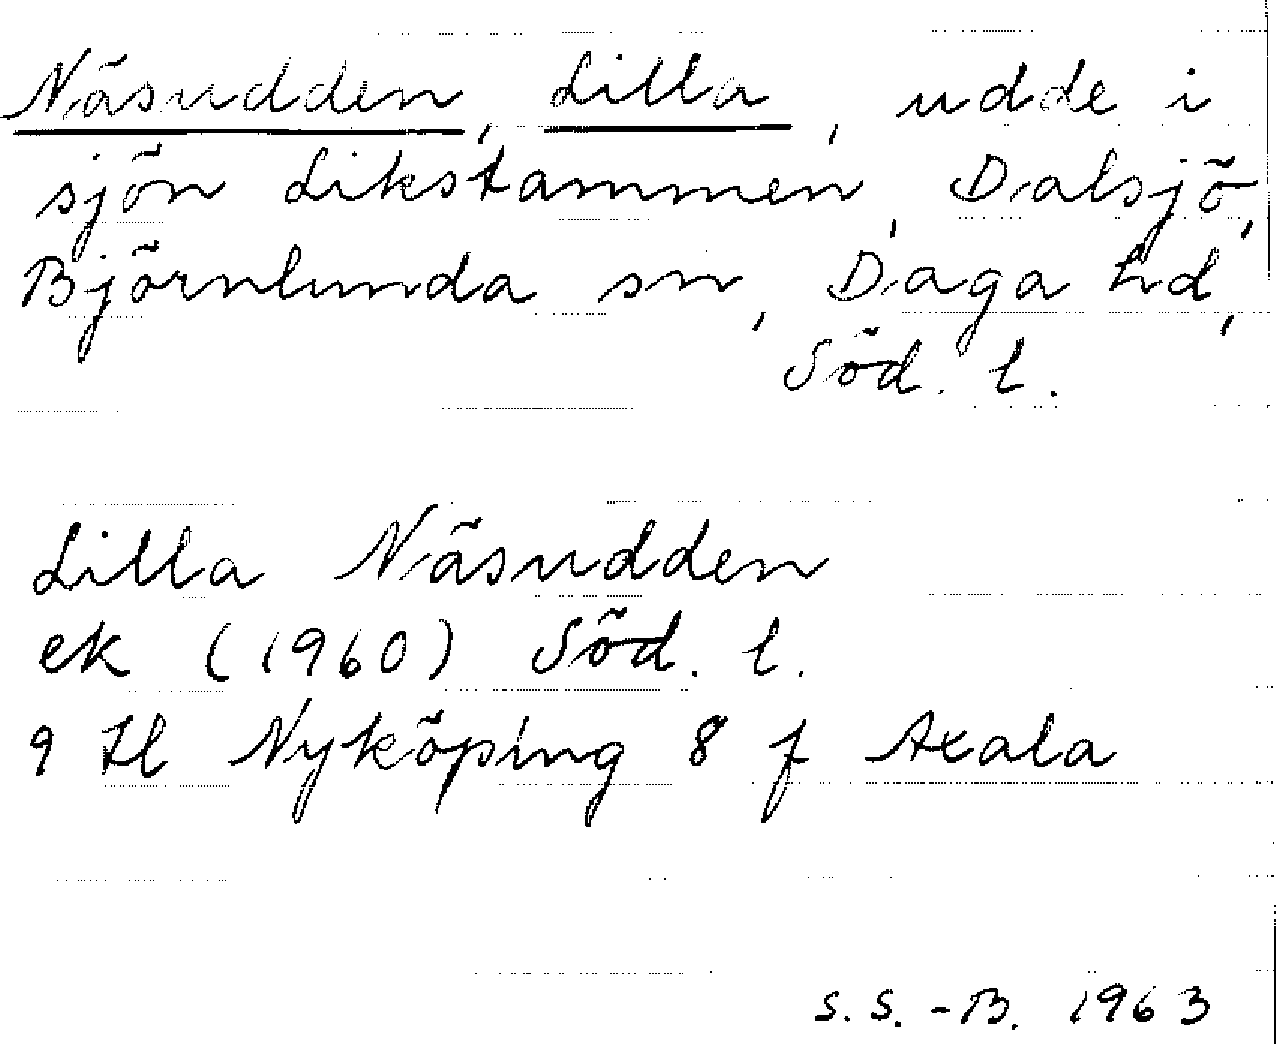 Näsudden, Lilla, udde i
sjön Likstammen, Dalsjö,
Björnlunda sn, Daga hd,
Söd. l.
Lilla Näsudden
ek (1960) Söd. l.
9 H Nyköping 8 f Axala
S. S. -B. 1963